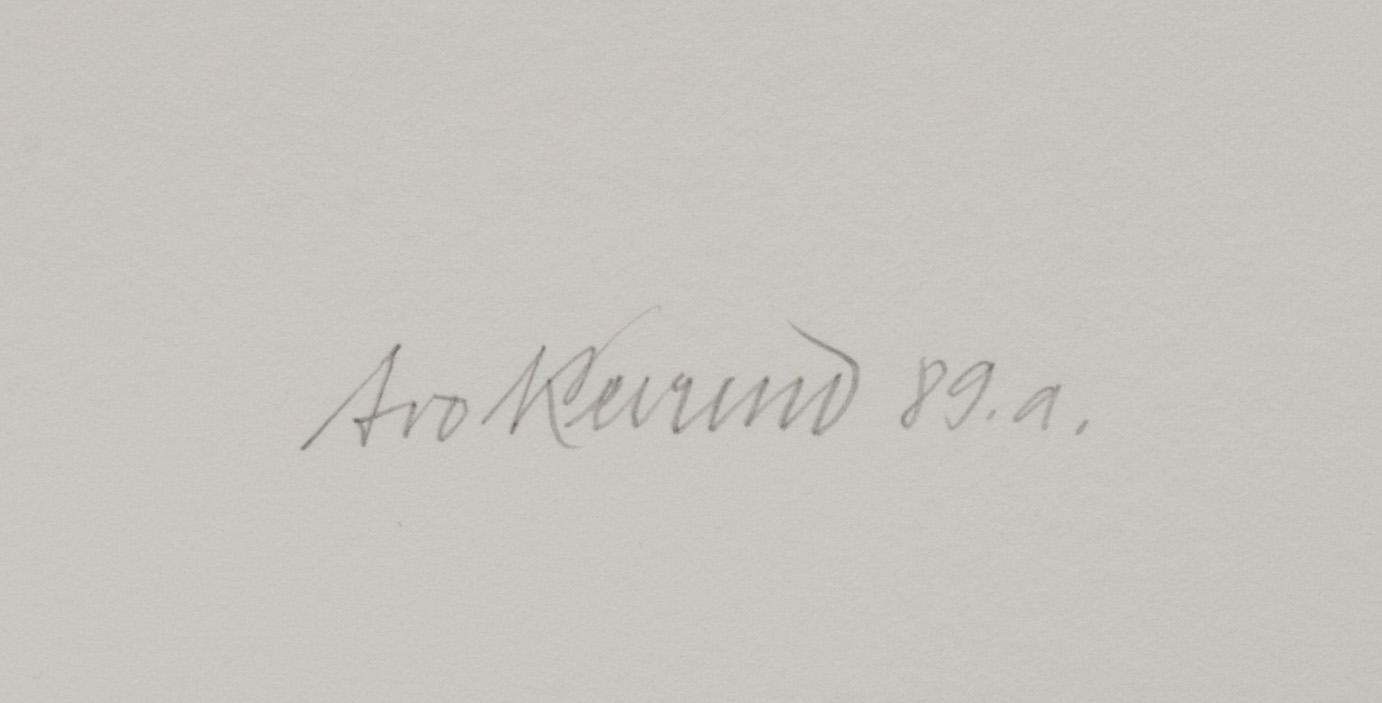 Avo Keerend 89.a.